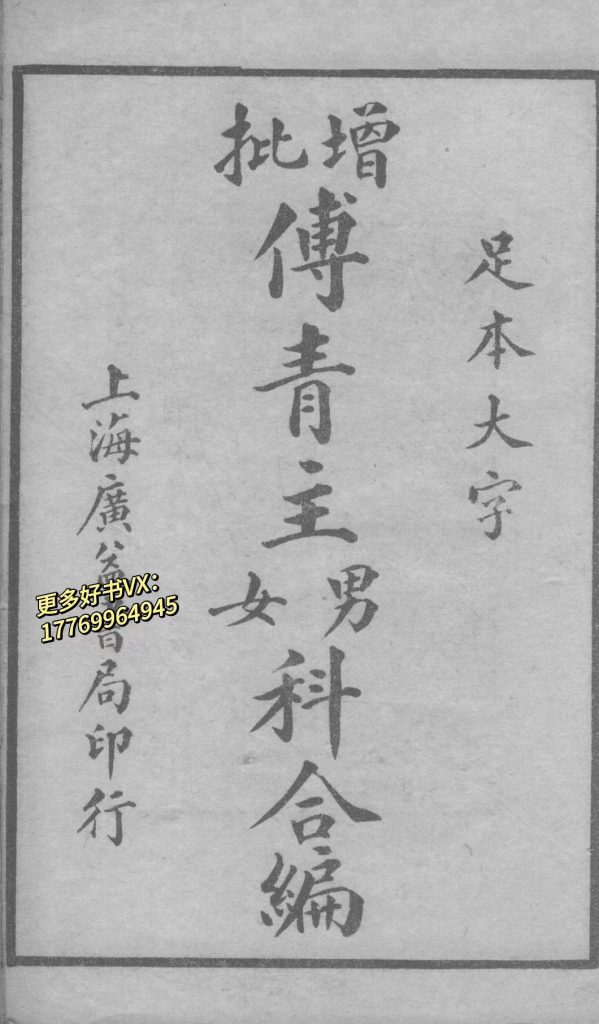 足本大字
增批
傅青主
男女
科合編
上海廣益書局印行
更多好书VX：
17769964945